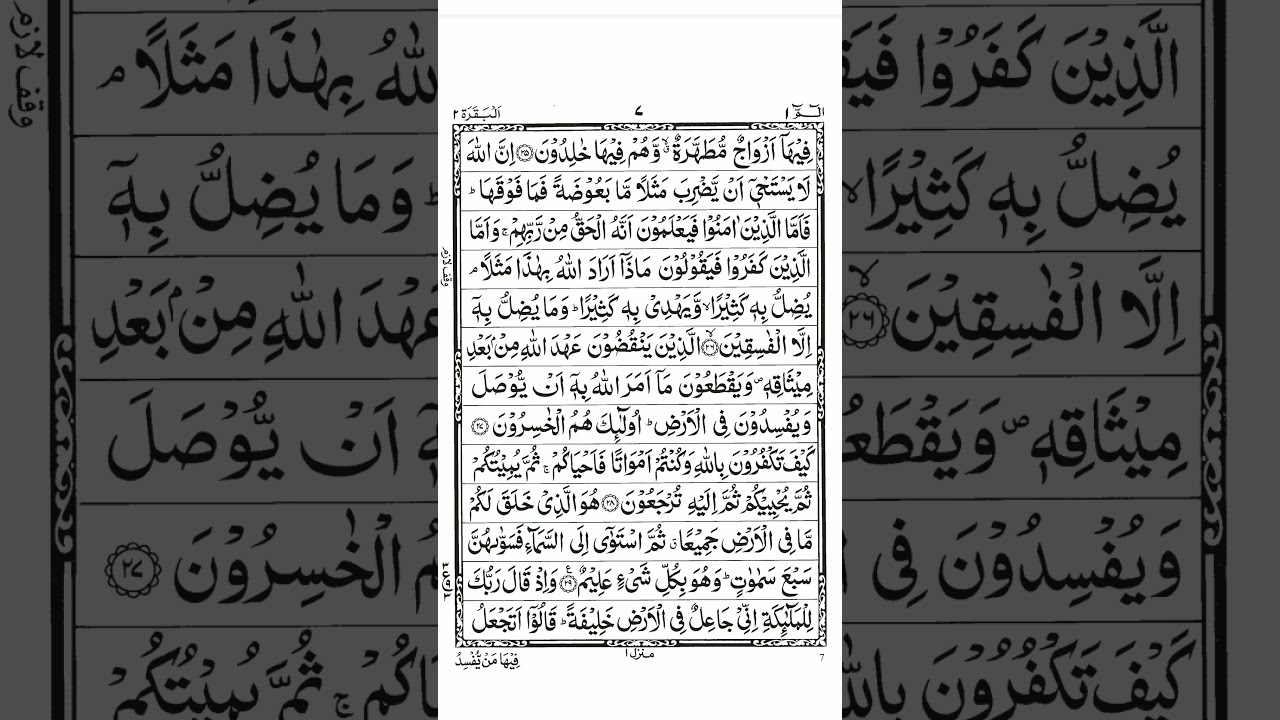 الٓمّٓ ١
٧
اَلْبَقَرَة ٢
فِيْهَاۤ اَزْوَاجٌ مُّطَهَّرَةٌ ۙۗ وَّهُمْ فِيْهَا خٰلِدُوْنَ ۝٢٥ اِنَّ اللّٰهَ
لَا يَسْتَحْيٖۤ اَنْ يَّضْرِبَ مَثَلًا مَّا بَعُوْضَةً فَمَا فَوْقَهَا ؕ
فَاَمَّا الَّذِيْنَ اٰمَنُوْا فَيَعْلَمُوْنَ اَنَّهُ الْحَقُّ مِنْ رَّبِّهِمْ ۚ وَاَمَّا
الَّذِيْنَ كَفَرُوْا فَيَقُوْلُوْنَ مَاذَاۤ اَرَادَ اللّٰهُ بِهٰذَا مَثَلًا ۘ
وقف لازم
يُضِلُّ بِهٖ كَثِيْرًا ۙ وَّيَهْدِىْ بِهٖ كَثِيْرًا ؕ وَمَا يُضِلُّ بِهٖۤ
اِلَّا الْفٰسِقِيْنَ ۝٢٦ۙ الَّذِيْنَ يَنْقُضُوْنَ عَهْدَ اللّٰهِ مِنْۢ بَعْدِ
مِيْثَاقِهٖ ۪ وَيَقْطَعُوْنَ مَاۤ اَمَرَ اللّٰهُ بِهٖۤ اَنْ يُّوْصَلَ
وَيُفْسِدُوْنَ فِى الْاَرْضِ ؕ اُولٰٓئِكَ هُمُ الْخٰسِرُوْنَ ۝٢٧
كَيْفَ تَكْفُرُوْنَ بِاللّٰهِ وَكُنْتُمْ اَمْوَاتًا فَاَحْيَاكُمْ ۚ ثُمَّ يُمِيْتُكُمْ
ثُمَّ يُحْيِيْكُمْ ثُمَّ اِلَيْهِ تُرْجَعُوْنَ ۝٢٨ هُوَ الَّذِىْ خَلَقَ لَكُمْ
مَّا فِى الْاَرْضِ جَمِيْعًا ۗ ثُمَّ اسْتَوٰۤى اِلَى السَّمَآءِ فَسَوّٰىهُنَّ
سَبْعَ سَمٰوٰتٍ ؕ وَهُوَ بِكُلِّ شَىْءٍ عَلِيْمٌ ۝٢٩ وَاِذْ قَالَ رَبُّكَ
لِلْمَلٰٓئِكَةِ اِنِّىْ جَاعِلٌ فِى الْاَرْضِ خَلِيْفَةً ؕ قَالُوْۤا اَتَجْعَلُ
منزل ١
7
فِيْهَا مَنْ يُّفْسِدُ